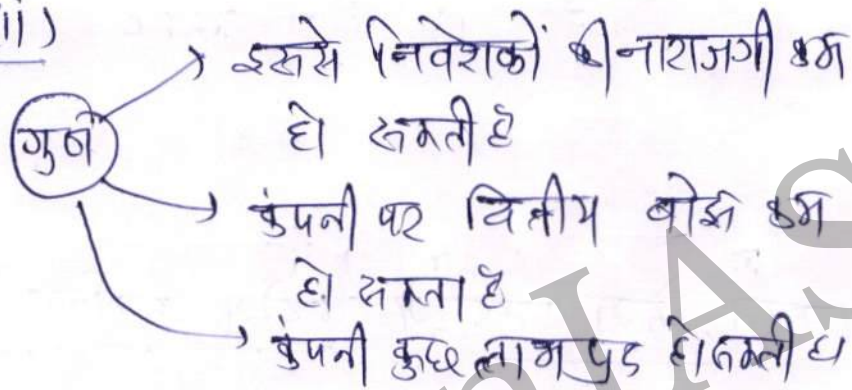 ii)
इससे निवेशकों की नाराजगी कम
हो सकती है
गुण
कंपनी पर वित्तीय बोझ कम
हो सकता है
कंपनी कुछ लाभप्रद हो सकती है।
IAS